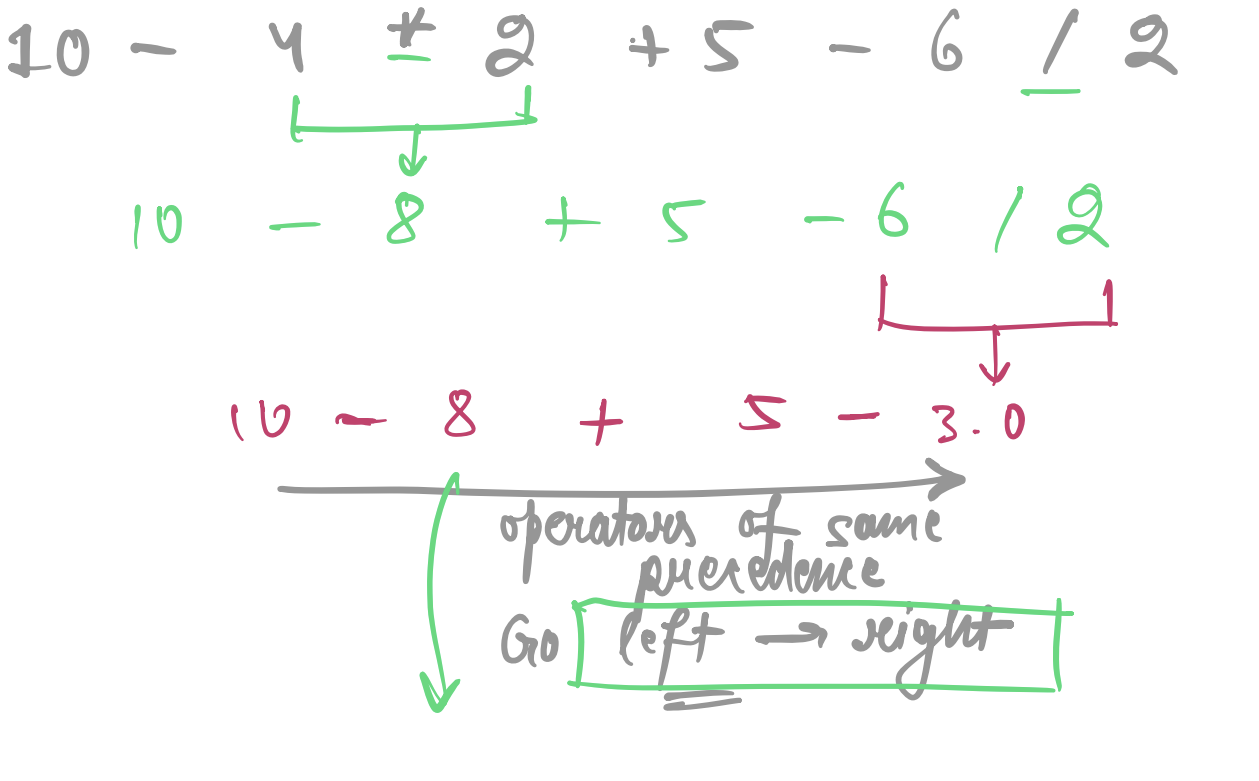 10 - 4 * 2 + 5 - 6 / 2
10 - 8 + 5 - 6 / 2
10 - 8 + 5 - 3.0
operators of same
precedence
Go left → right